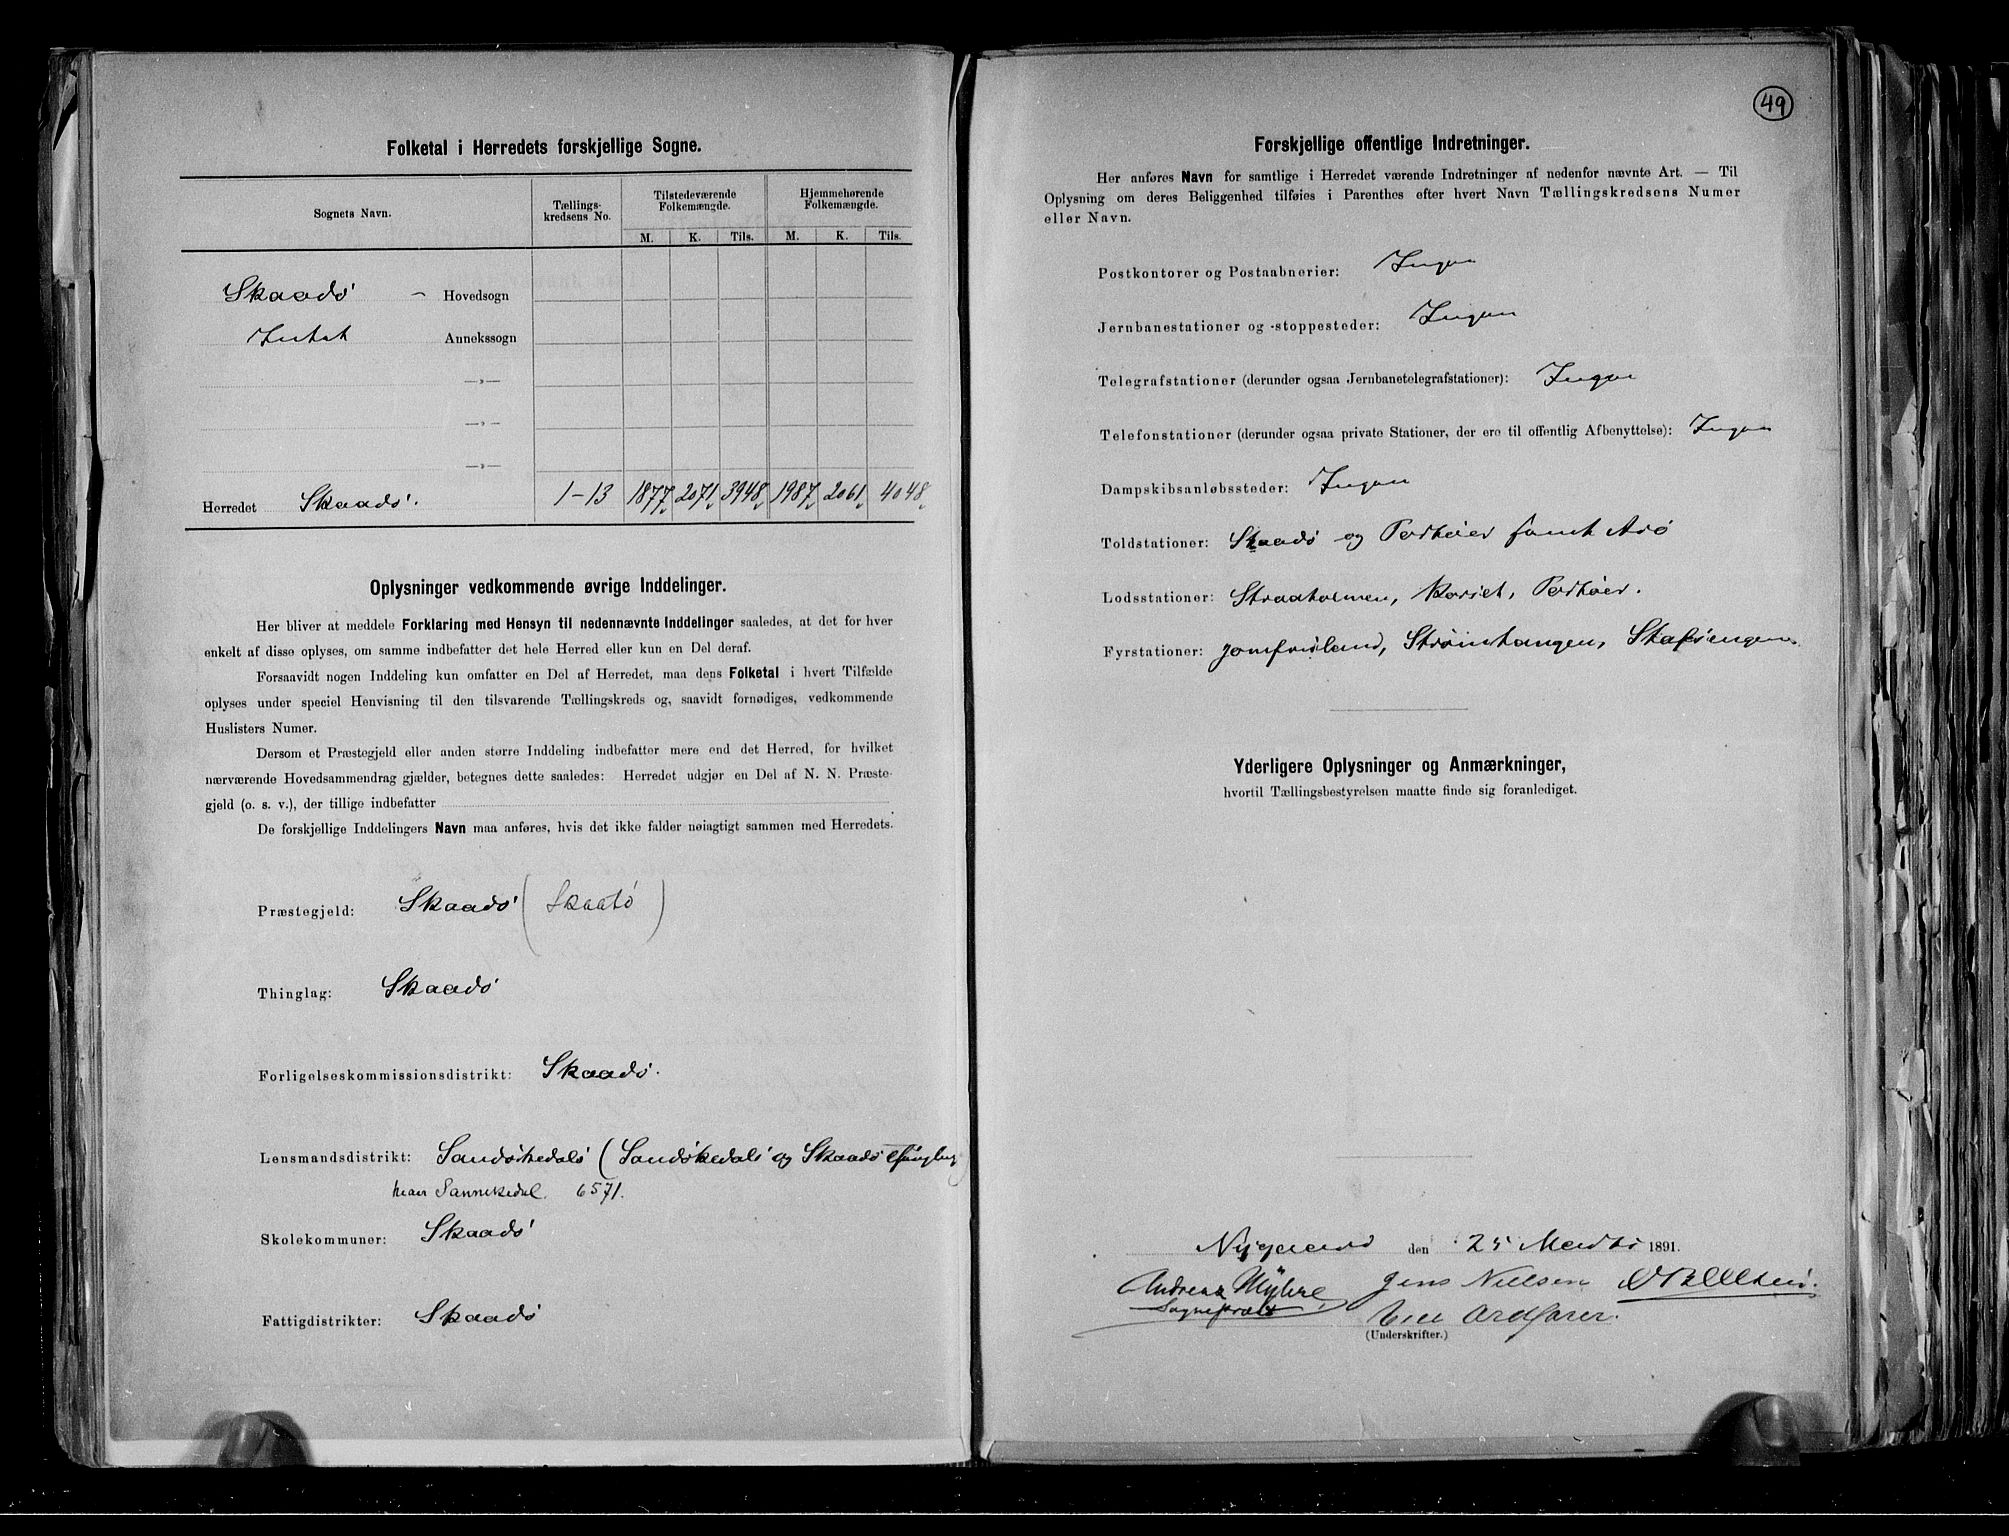 Folketal i Herredets forskjellige Sogne.
Sognets Navn.
Tællings-
kredsens No.
Tilstedeværende
Folkemængde.
Hjemmehørende
Folkemængde.
M. K. Tils. M. K. Tils.
Skaadø – Hovedsogn
Intet Annekssogn
—»—
—»—
—»—
Herredet Skaadø. 1-13 1877 2071 3948 1987 2061 4048
Oplysninger vedkommende øvrige Inddelinger.
Her bliver at meddele Forklaring med Hensyn til nedennævnte Inddelinger saaledes, at det for hver
enkelt af disse oplyses, om samme indbefatter det hele Herred eller kun en Del deraf.
Forsaavidt nogen Inddeling kun omfatter en Del af Herredet, maa dens Folketal i hvert Tilfælde
oplyses under speciel Henvisning til den tilsvarende Tællingskreds og, saavidt fornødiges, vedkommende
Huslisters Numer.
Dersom et Præstegjeld eller anden større Inddeling indbefatter mere end det Herred, for hvilket
nærværende Hovedsammendrag gjælder, betegnes dette saaledes: Herredet udgjør en Del af N. N. Præste-
gjeld (o. s. v.), der tillige indbefatter
De forskjellige Inddelingers Navn maa anføres, hvis det ikke falder nøiagtigt sammen med Herredets.
Præstegjeld: Skaadø (Skaatø)
Thinglag: Skaadø
Forligelseskommissionsdistrikt: Skaadø.
Lensmandsdistrikt: Sandøkedals (Sandøkedals og Skaadø Thinglag)
Sannikedal. 6571.
Skolekommuner: Skaadø
Fattigdistrikter: Skaadø
49
Forskjellige offentlige Indretninger.
Her anføres Navn for samtlige i Herredet værende Indretninger af nedenfor nævnte Art. — Til
Oplysning om deres Beliggenhed tilføies i Parenthes efter hvert Navn Tællingskredsens Numer
eller Navn.
Postkontorer og Postaabnerier: Ingen
Jernbanestationer og -stoppesteder: Ingen
Telegrafstationer (derunder ogsaa Jernbanetelegrafstationer): Ingen
Telefonstationer (derunder ogsaa private Stationer, der ere til offentlig Afbenyttelse): Ingen
Dampskibsanløbssteder: Ingen
Toldstationer: Skaadø og Portøer samt Arø
Lodsstationer: Straaholmen, Korset, Portøer.
Fyrstationer: Jomfruland, Strømtangen, Stafsengen
Yderligere Oplysninger og Anmærkninger,
hvortil Tællingsbestyrelsen maatte finde sig foranlediget.
den 25 Marts 1891.
Andreas Myhre Jens Nielsen
Sogneprest
(Underskrifter.)